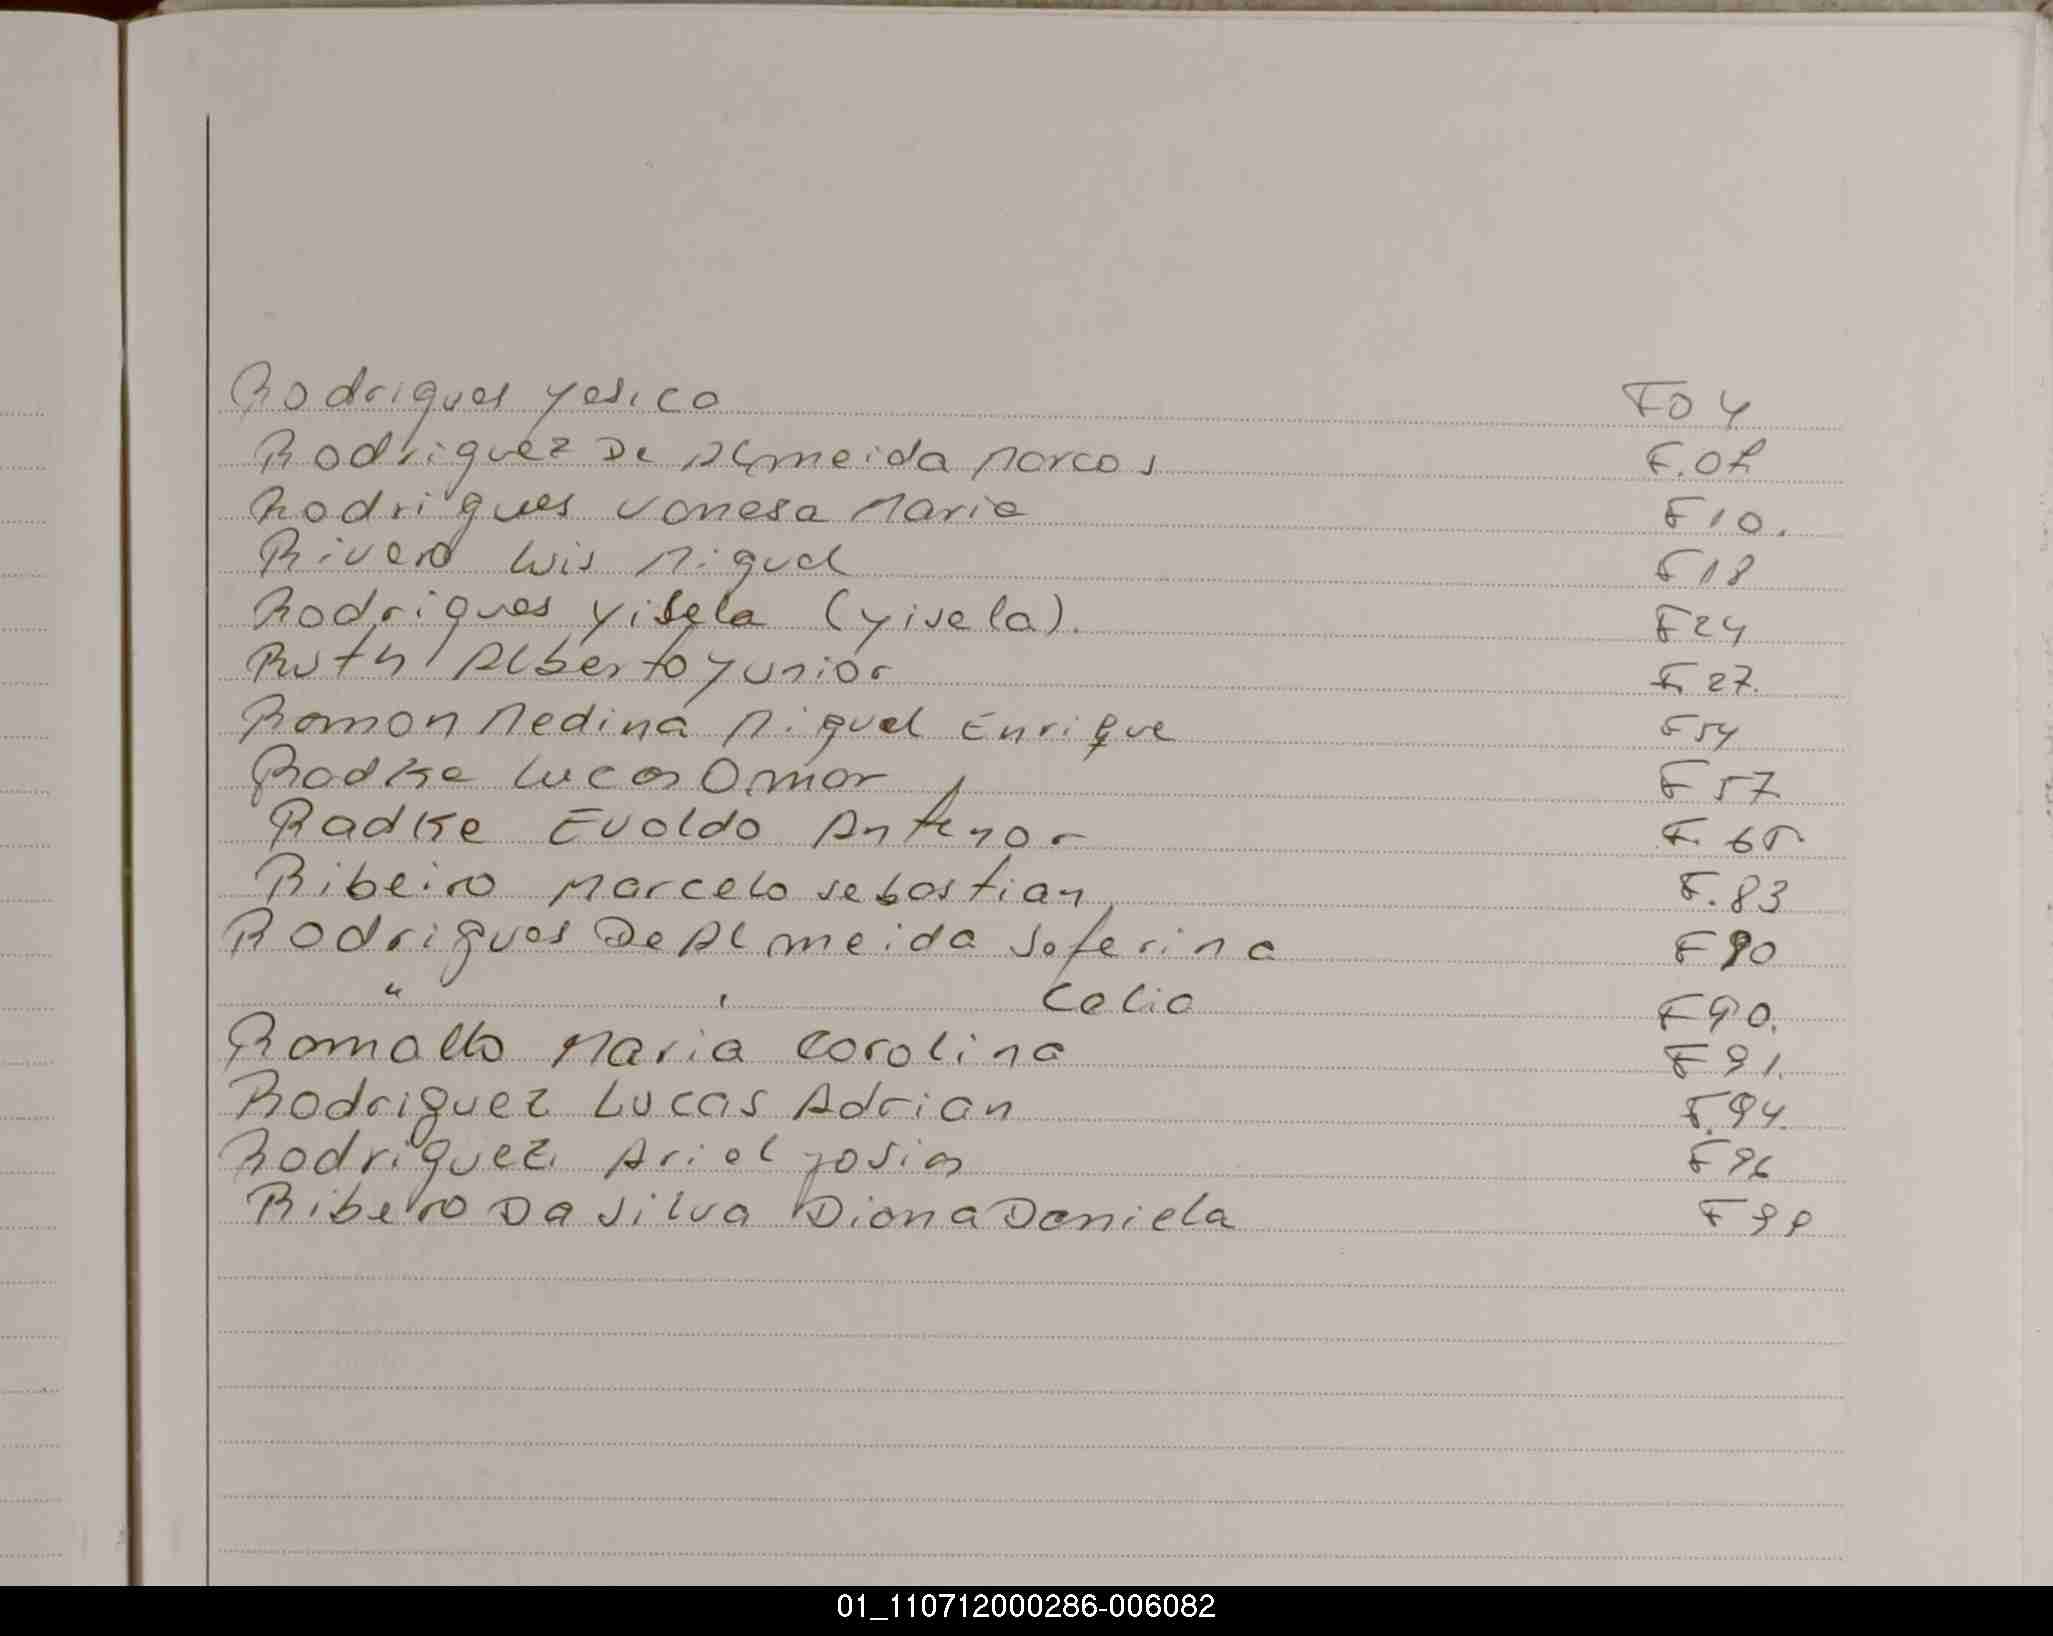 Rodrigues Yesica F04
Rodriguez De Almeida Marcos F.08
Rodrigues Vanesa Maria F10.
Rivero Luis Miguel F18
Rodrigues Yisela (yisela). F24
Ruth Alberto Yunior F27.
Ramon Medina Miguel Enrique F54
Radke Lucas Omar F57
Radke Evaldo Antenor F. 65
Ribeiro Marcelo Sebastian F.83
Rodrigues De Almeida Seferina F90
" " Celia F90.
Ramallo Maria Carolina F91.
Rodriguez Lucas Adrian F.94.
Rodriguez Ariel Josias F96
Ribero Da Silva Diana Daniela F99
01_110712000286-006082